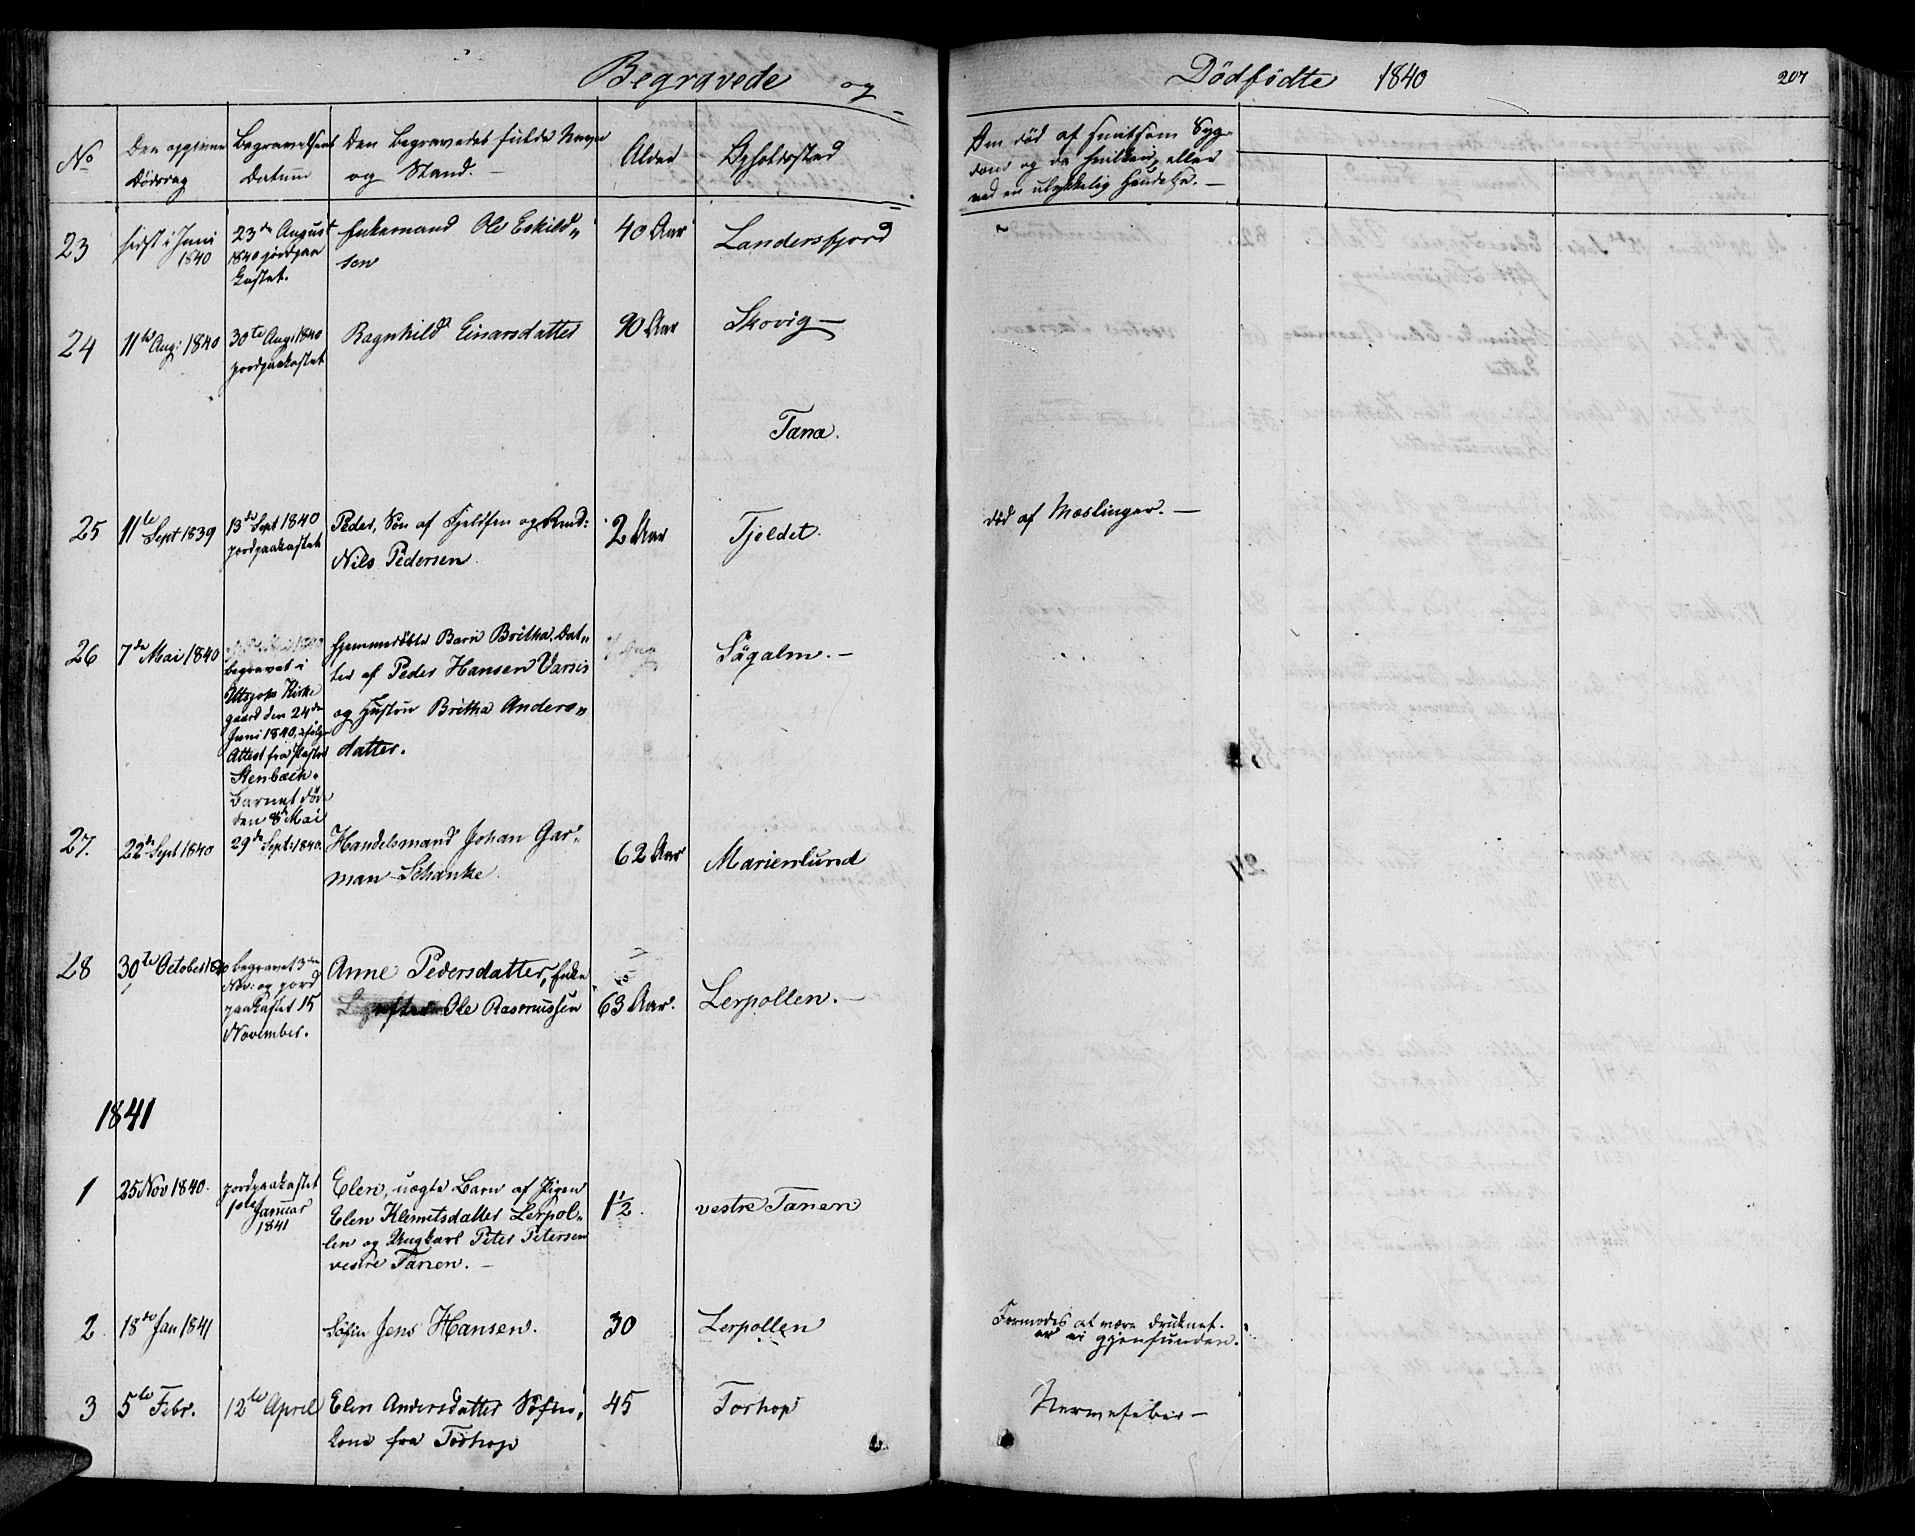 Begravede og
Dödfödte 1840
207
No
Den opgivne
Dödsdag
Begravelsens
Datum
Den begravedes fulde Navn
og Stand. –
Alder
Opholdssted
Om död af smitsom Syg-
dom og da hvilken, eller
ved en ulykkelig Hændelse. –
23
sidst i Juni
1840
23de August
1840 jordpaa
kastet.
Enkemand Ole Eskild„
sen
40 Aar
Landersfjord
24
11te Aug: 1840
30te Aug: 1840
jordpaakastet
Ragnhild Einarsdatter
90 Aar
Skovig –
Tana.
25
11te Sept 1839
13de Sept 1840
jordpaakastet
Peder, Sön af Fjeldfin og
Nils Pedersen
2 Aar
Fjeldet.
död af Mæslinger. –
26
7de Mai 1840
begravet i
Utsjoks Kirke
gaard den 24de
Juni 1840, ifölge
Attest fra Pastor
Stenbäck.
Barnet döde
den 8de Mai
hjemmedöbte Barn Britha, Dat„
ter af Peder Hansen Varsis
og Hustru Britha Anders„
datter.
Sägalm. –
27.
22de Sept 1840
29de Sept: 1840.
Handelsmand Johan Gar„
man Schanke.
62 Aar
Marienlund
28
30te October 1840
begravet 3die
Nov: og jord
paakastet 15
November.
Anne Pedersdatter, Enke
efter Ole Rasmussen
63 Aar.
Lerpollen. –
1841
1
25 Nov 1840.
jordpaakastet
1ste Januar
1841
Elen, uægte Barn af Pigen
Elen Klemitsdatter Lerpol„
len og Ungkarl Peter Petersen
vestre Tanen. –
1½.
vestre Tanen
2
18de Jan 1841
Söfin Jens Hansen.
30
Lerpollen
Formodes at være druknet.
er ei gjenfunden.
3
5te Febr.
12te April
Elen Andersdatter Söfin„
kone fra Torhop
45
Torhop
Nervefeber –